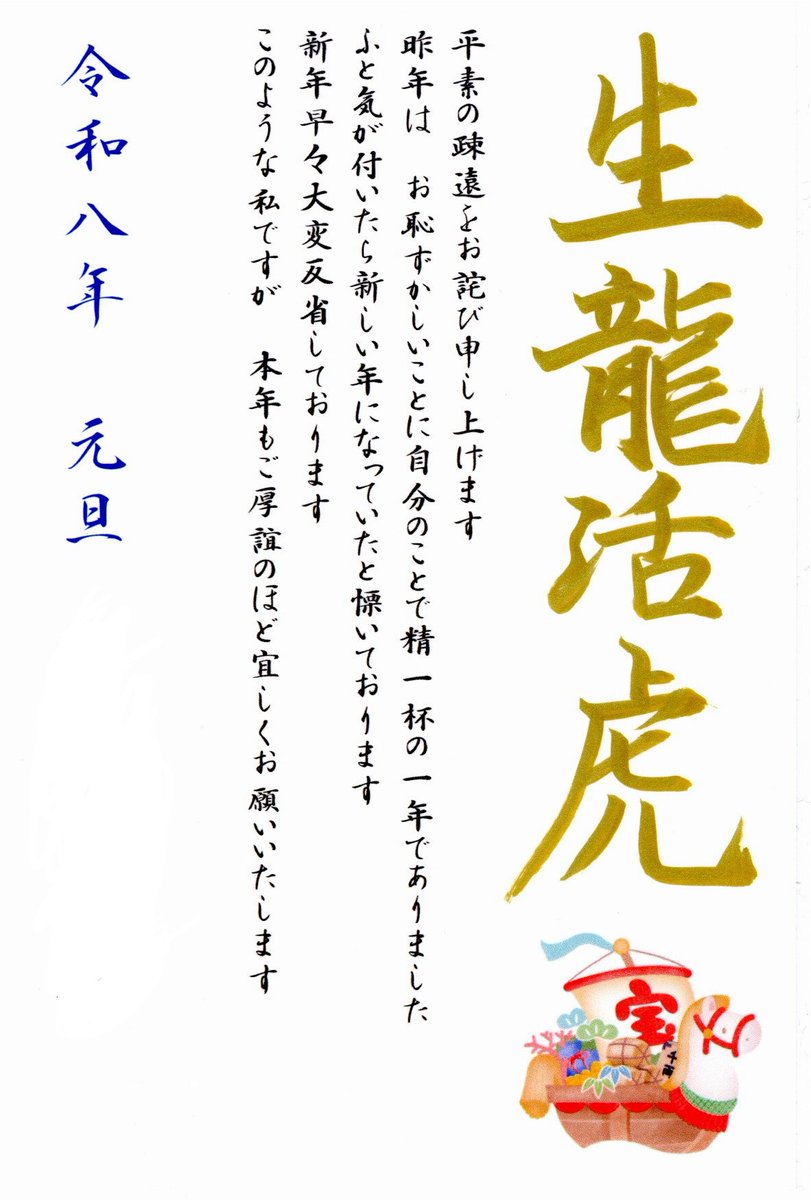 生龍活虎
平素の疎遠をお詫び申し上げます
昨年は　お恥ずかしいことに自分のことで精一杯の一年でありました
ふと気が付いたら新しい年になっていたと慄いております
新年早々大変反省しております
このような私ですが　本年もご厚誼のほど宜しくお願いいたします
令和八年　元旦
宝